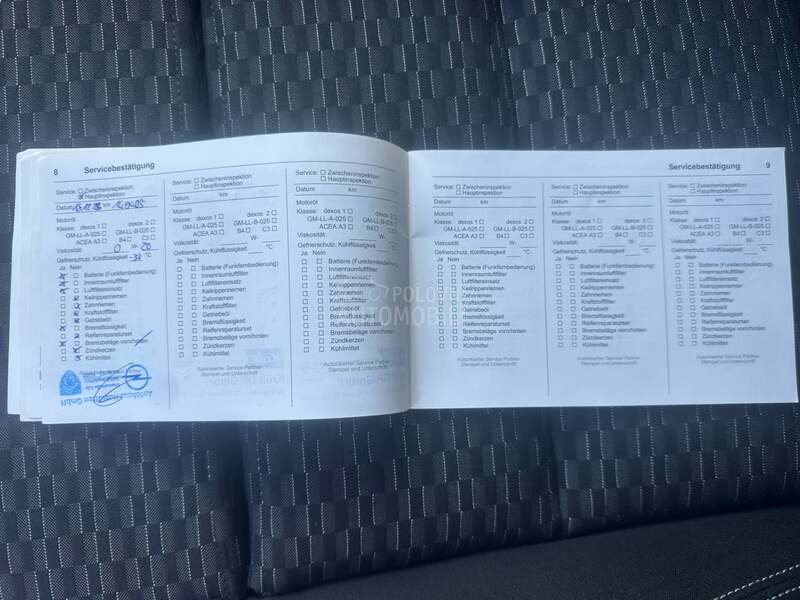 8 Servicebestätigung
Service: Zwischeninspektion
Hauptinspektion
Datum km
Motoröl
Klasse: dexos 1 dexos 2
GM-LL-A-025 GM-LL-B-025
ACEA A3 B4 C3
Viskosität 0 W- 20
Gefrierschutz, Kühlflüssigkeit -38 °C
Ja Nein
Batterie (Funkfernbedienung)
Innenraumluftfilter
Luftfiltereinsatz
Keilrippenriemen
Zahnriemen
Kraftstofffilter
Getriebeöl
Bremsflüssigkeit
Reifenreparaturset
Bremsbeläge vorn/hinten
Zündkerzen
Kühlmittel
GmbH
Service: Zwischeninspektion
Hauptinspektion
Datum km
Motoröl
Klasse: dexos 1 dexos 2
GM-LL-A-025 GM-LL-B-025
ACEA A3 B4 C3
Viskosität: W-
Gefrierschutz, Kühlflüssigkeit °C
Ja Nein
Batterie (Funkfernbedienung)
Innenraumluftfilter
Luftfiltereinsatz
Keilrippenriemen
Zahnriemen
Kraftstofffilter
Getriebeöl
Bremsflüssigkeit
Reifenreparaturset
Bremsbeläge vorn/hinten
Zündkerzen
Kühlmittel
Autorisierter Service Partner
Stempel und Unterschrift
Service: Zwischeninspektion
Hauptinspektion
Datum km
Motoröl
Klasse: dexos 1 dexos 2
GM-LL-A-025 GM-LL-B-025
ACEA A3 B4 C3
Viskosität: W-
Gefrierschutz, Kühlflüssigkeit °C
Ja Nein
Batterie (Funkfernbedienung)
Innenraumluftfilter
Luftfiltereinsatz
Keilrippenriemen
Zahnriemen
Kraftstofffilter
Getriebeöl
Bremsflüssigkeit
Reifenreparaturset
Bremsbeläge vorn/hinten
Zündkerzen
Kühlmittel
Autorisierter Service Partner
Stempel und Unterschrift
Servicebestätigung 9
Service: Zwischeninspektion
Hauptinspektion
Datum km
Motoröl
Klasse: dexos 1 dexos 2
GM-LL-A-025 GM-LL-B-025
ACEA A3 B4 C3
Viskosität: W-
Gefrierschutz, Kühlflüssigkeit °C
Ja Nein
Batterie (Funkfernbedienung)
Innenraumluftfilter
Luftfiltereinsatz
Keilrippenriemen
Zahnriemen
Kraftstofffilter
Getriebeöl
Bremsflüssigkeit
Reifenreparaturset
Bremsbeläge vorn/hinten
Zündkerzen
Kühlmittel
Autorisierter Service Partner
Stempel und Unterschrift
Service: Zwischeninspektion
Hauptinspektion
Datum km
Motoröl
Klasse: dexos 1 dexos 2
GM-LL-A-025 GM-LL-B-025
ACEA A3 B4 C3
Viskosität: W-
Gefrierschutz, Kühlflüssigkeit °C
Ja Nein
Batterie (Funkfernbedienung)
Innenraumluftfilter
Luftfiltereinsatz
Keilrippenriemen
Zahnriemen
Kraftstofffilter
Getriebeöl
Bremsflüssigkeit
Reifenreparaturset
Bremsbeläge vorn/hinten
Zündkerzen
Kühlmittel
Autorisierter Service Partner
Stempel und Unterschrift
Service: Zwischeninspektion
Hauptinspektion
Datum km
Motoröl
Klasse: dexos 1 dexos 2
GM-LL-A-025 GM-LL-B-025
ACEA A3 B4 C3
Viskosität: W-
Gefrierschutz, Kühlflüssigkeit °C
Ja Nein
Batterie (Funkfernbedienung)
Innenraumluftfilter
Luftfiltereinsatz
Keilrippenriemen
Zahnriemen
Kraftstofffilter
Getriebeöl
Bremsflüssigkeit
Reifenreparaturset
Bremsbeläge vorn/hinten
Zündkerzen
Kühlmittel
Autorisierter Service Partner
Stempel und Unterschrift